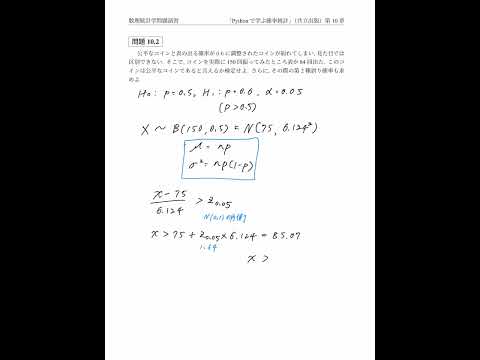 数理統計学問題演習 「Pythonで学ぶ確率統計」(共立出版) 第10章
問題 10.2
公平なコインと表の出る確率が 0.6 に調整されたコインが混ざってしまい, 見た目では
区別できない. そこで, コインを実際に 150 回振ってみたところ表が 84 回出た. このコ
インは公平なコインであると言えるか検定せよ. さらに, その際の第 2 種誤り確率も求
めよ
H₀ : p = 0.5, H₁ : p = 0.6, α = 0.05
(p > 0.5)
X ~ B(150, 0.5) ≈ N(75, 6.124²)
μ = np
σ² = np(1-p)
x - 75
6.124
> z₀.₀₅
N(0,1)の片側
x > 75 + z₀.₀₅ × 6.124 = 85.07
1.64
x >